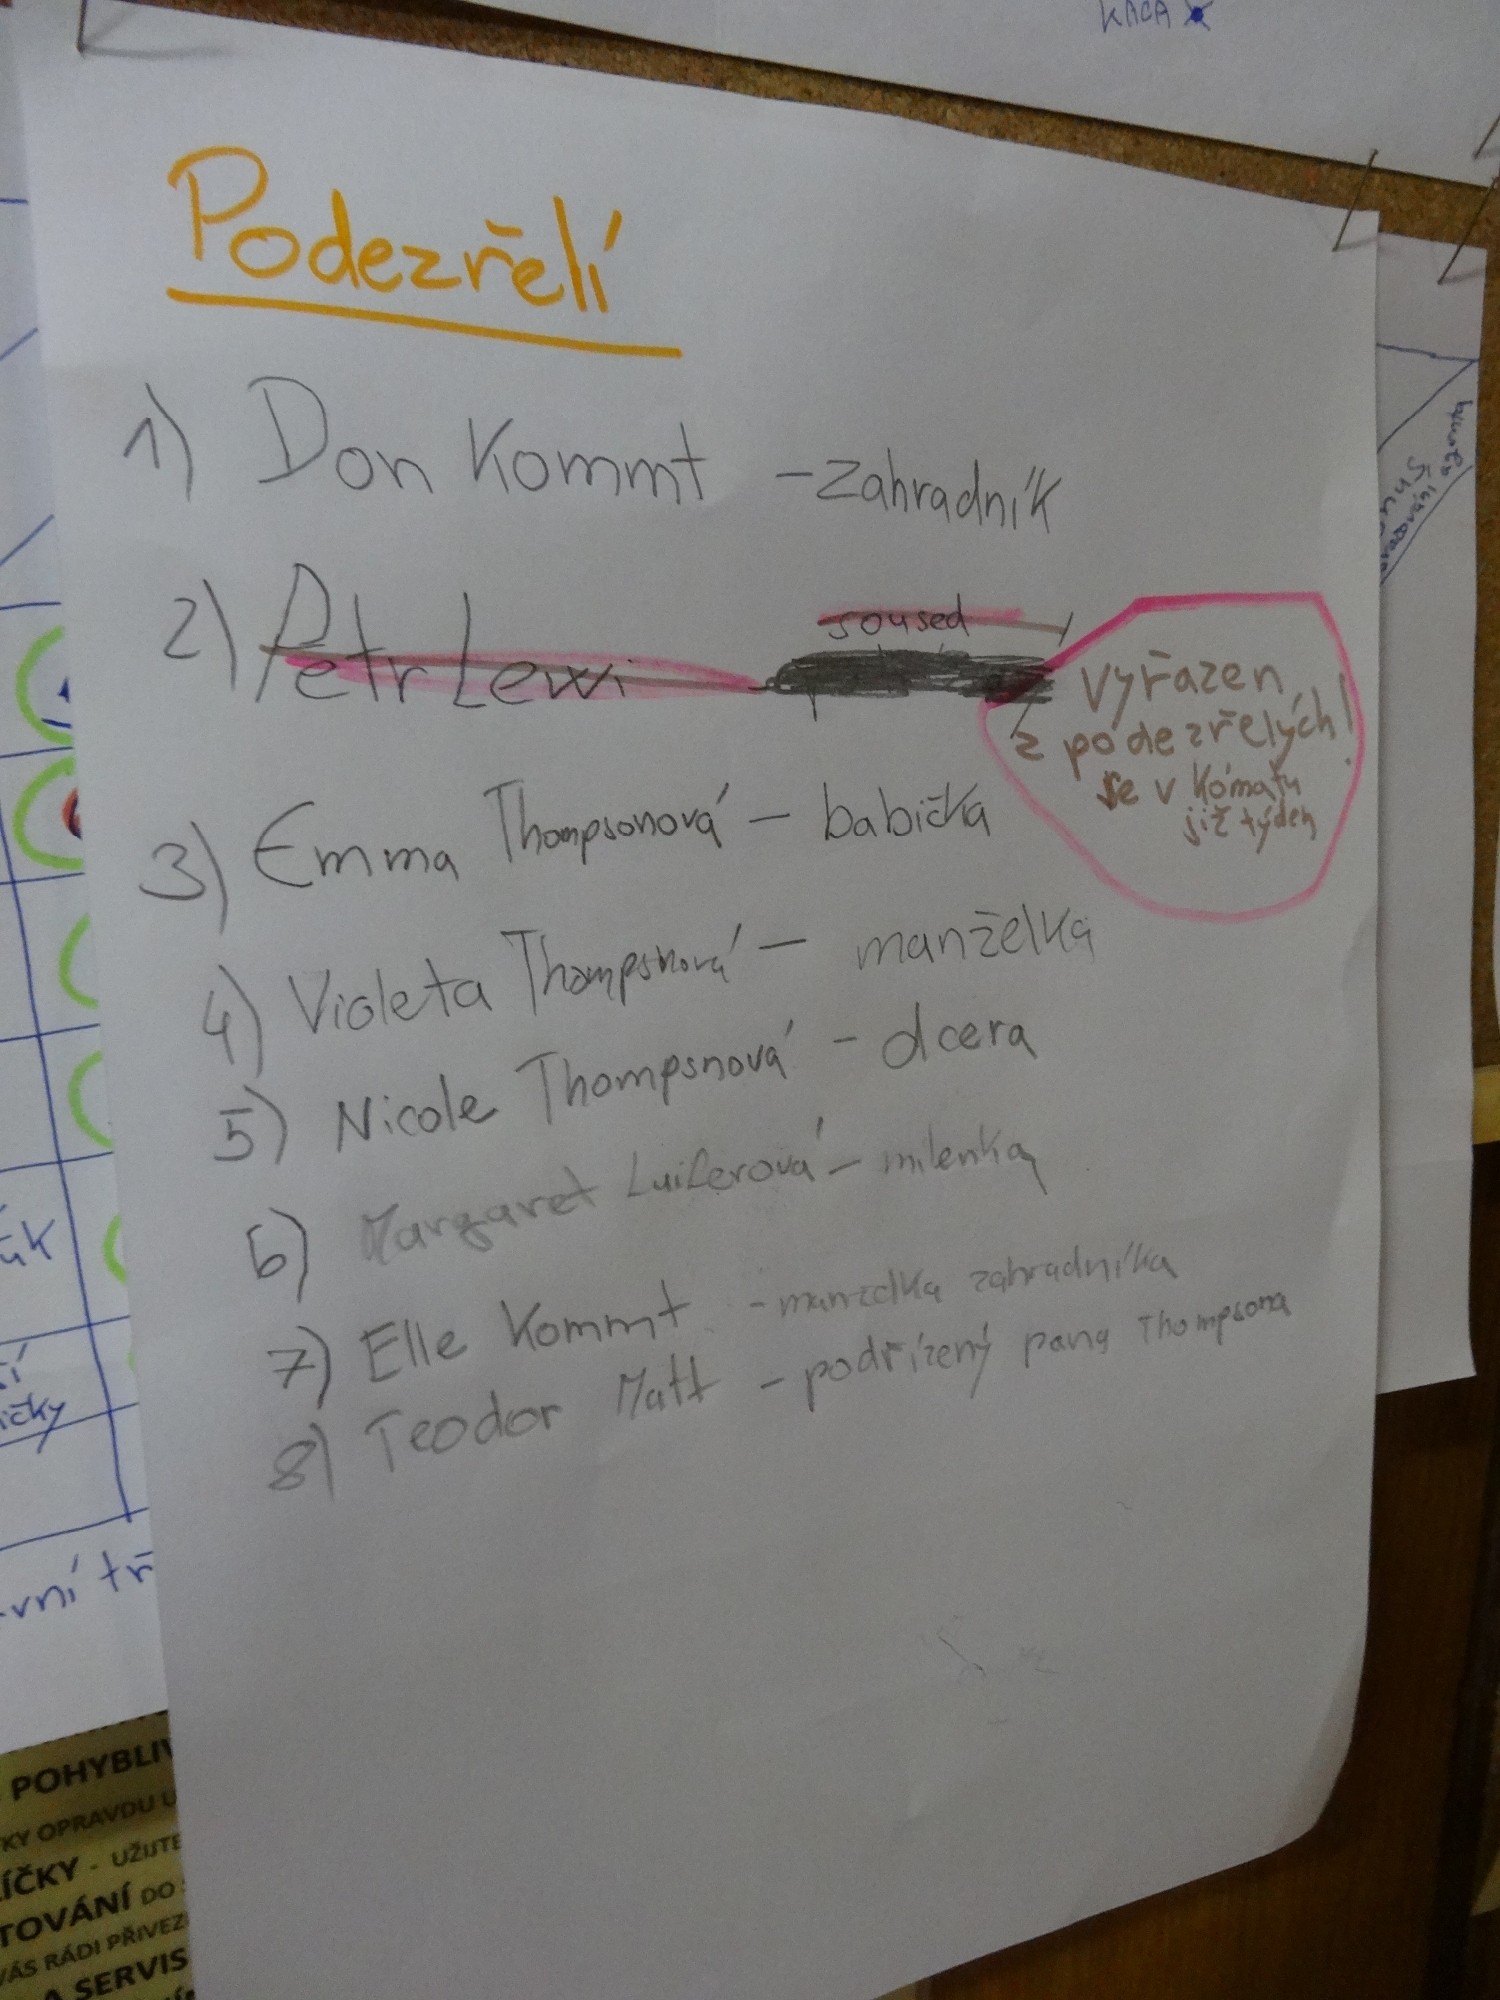 KACA
Podezřelí
1) Don Kommt - zahradník
soused
2) Petr Lewi
vyřazen
z podezřelých!
je v kómatu
již týden
3) Emma Thompsonová - babička
4) Violeta Thompsnová - manželka
5) Nicole Thompsnová - dcera
6) Margaret Luiferová - milenka
7) Elle Kommt - manzelka zahradníka
8) Teodor Matt - podřízený pana Thompsona
ičky
vní tř
POHYBLIV
KY OPRAVDU U
ÍČKY - UŽIJTE
TOVÁNÍ DO
VÁS RÁDI PŘIVEZ
A SERVIS